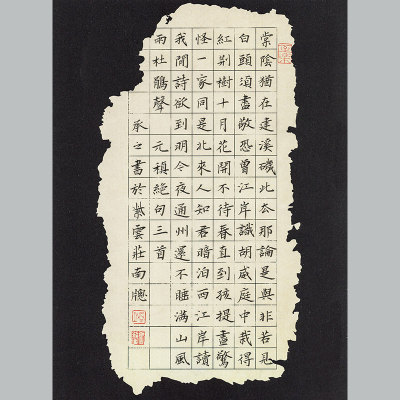 棠陰猶在建溪磯此去那論是與非若見
白頭須盡敬恐曾江岸識胡威庭中栽得
紅荊樹十月花開不待春直到孩提盡驚
怪一家同是北來人知君暗泊西江岸讀
我閒詩欲到明今夜通州還不睡滿山風
雨杜鵑聲 元稹絕句三首
承之書於紫雲莊南牕